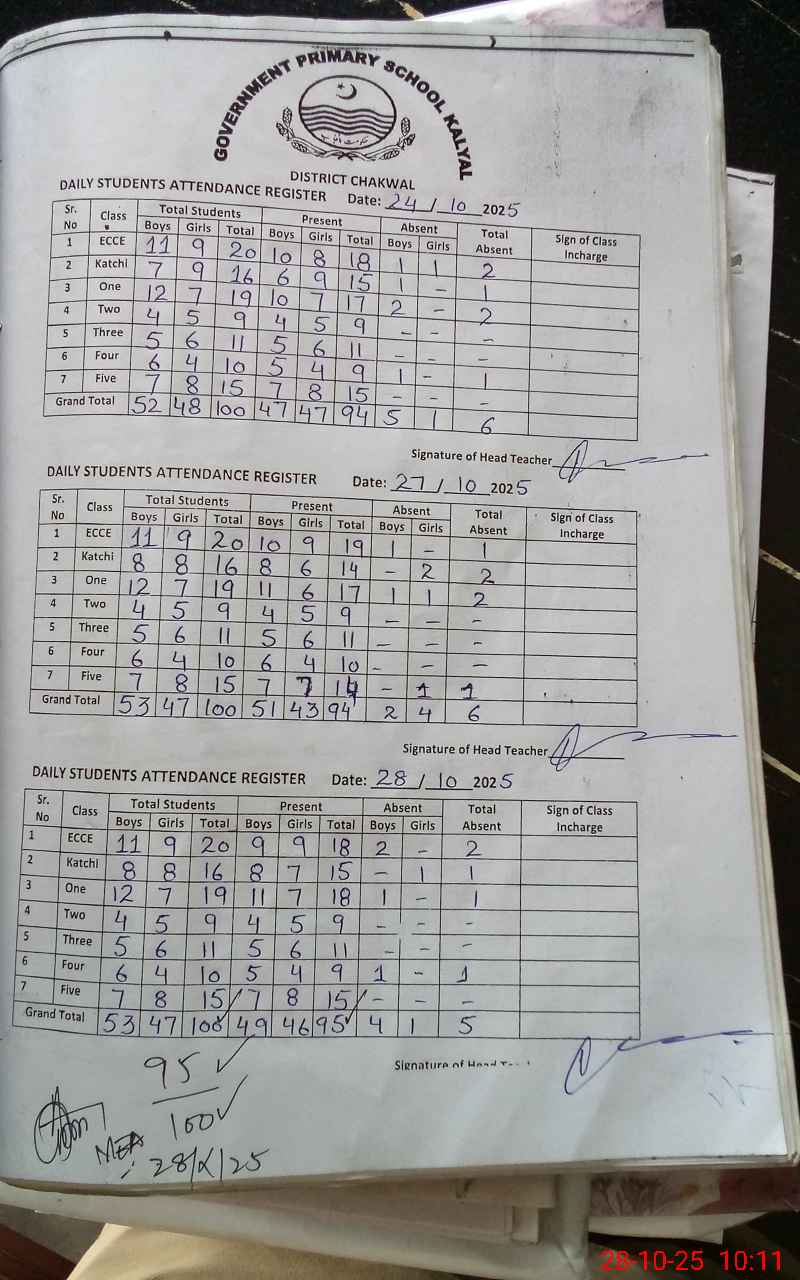 GOVERNMENT PRIMARY SCHOOL KALYAL
DISTRICT CHAKWAL
DAILY STUDENTS ATTENDANCE REGISTER Date: 24/10 2025
Sr. No Class Total Students Present Absent Total Absent Sign of Class Incharge
Boys Girls Total Boys Girls Total Boys Girls
1 ECCE 11 9 20 10 8 18 1 1 2
2 Katchi 7 9 16 6 9 15 1 - 1
3 One 12 7 19 10 7 17 2 - 2
4 Two 4 5 9 4 5 9 - - -
5 Three 5 6 11 5 6 11 - - -
6 Four 6 4 10 5 4 9 1 - 1
7 Five 7 8 15 7 8 15 - - -
Grand Total 52 48 100 47 47 94 5 1 6
Signature of Head Teacher
DAILY STUDENTS ATTENDANCE REGISTER Date: 27/10 2025
Sr. No Class Total Students Present Absent Total Absent Sign of Class Incharge
Boys Girls Total Boys Girls Total Boys Girls
1 ECCE 11 9 20 10 9 19 1 - 1
2 Katchi 8 8 16 8 6 14 - 2 2
3 One 12 7 19 11 6 17 1 1 2
4 Two 4 5 9 4 5 9 - - -
5 Three 5 6 11 5 6 11 - - -
6 Four 6 4 10 6 4 10 - - -
7 Five 7 8 15 7 7 14 - 1 1
Grand Total 53 47 100 51 43 94 2 4 6
Signature of Head Teacher
DAILY STUDENTS ATTENDANCE REGISTER Date: 28/10 2025
Sr. No Class Total Students Present Absent Total Absent Sign of Class Incharge
Boys Girls Total Boys Girls Total Boys Girls
1 ECCE 11 9 20 9 9 18 2 - 2
2 Katchi 8 8 16 8 7 15 - 1 1
3 One 12 7 19 11 7 18 1 - 1
4 Two 4 5 9 4 5 9 - - -
5 Three 5 6 11 5 6 11 - - -
6 Four 6 4 10 5 4 9 1 - 1
7 Five 7 8 15 7 8 15 - - -
Grand Total 53 47 100 49 46 95 4 1 5
Signature of Head
95
100
MEA
28/X/25
28-10-25 10:11